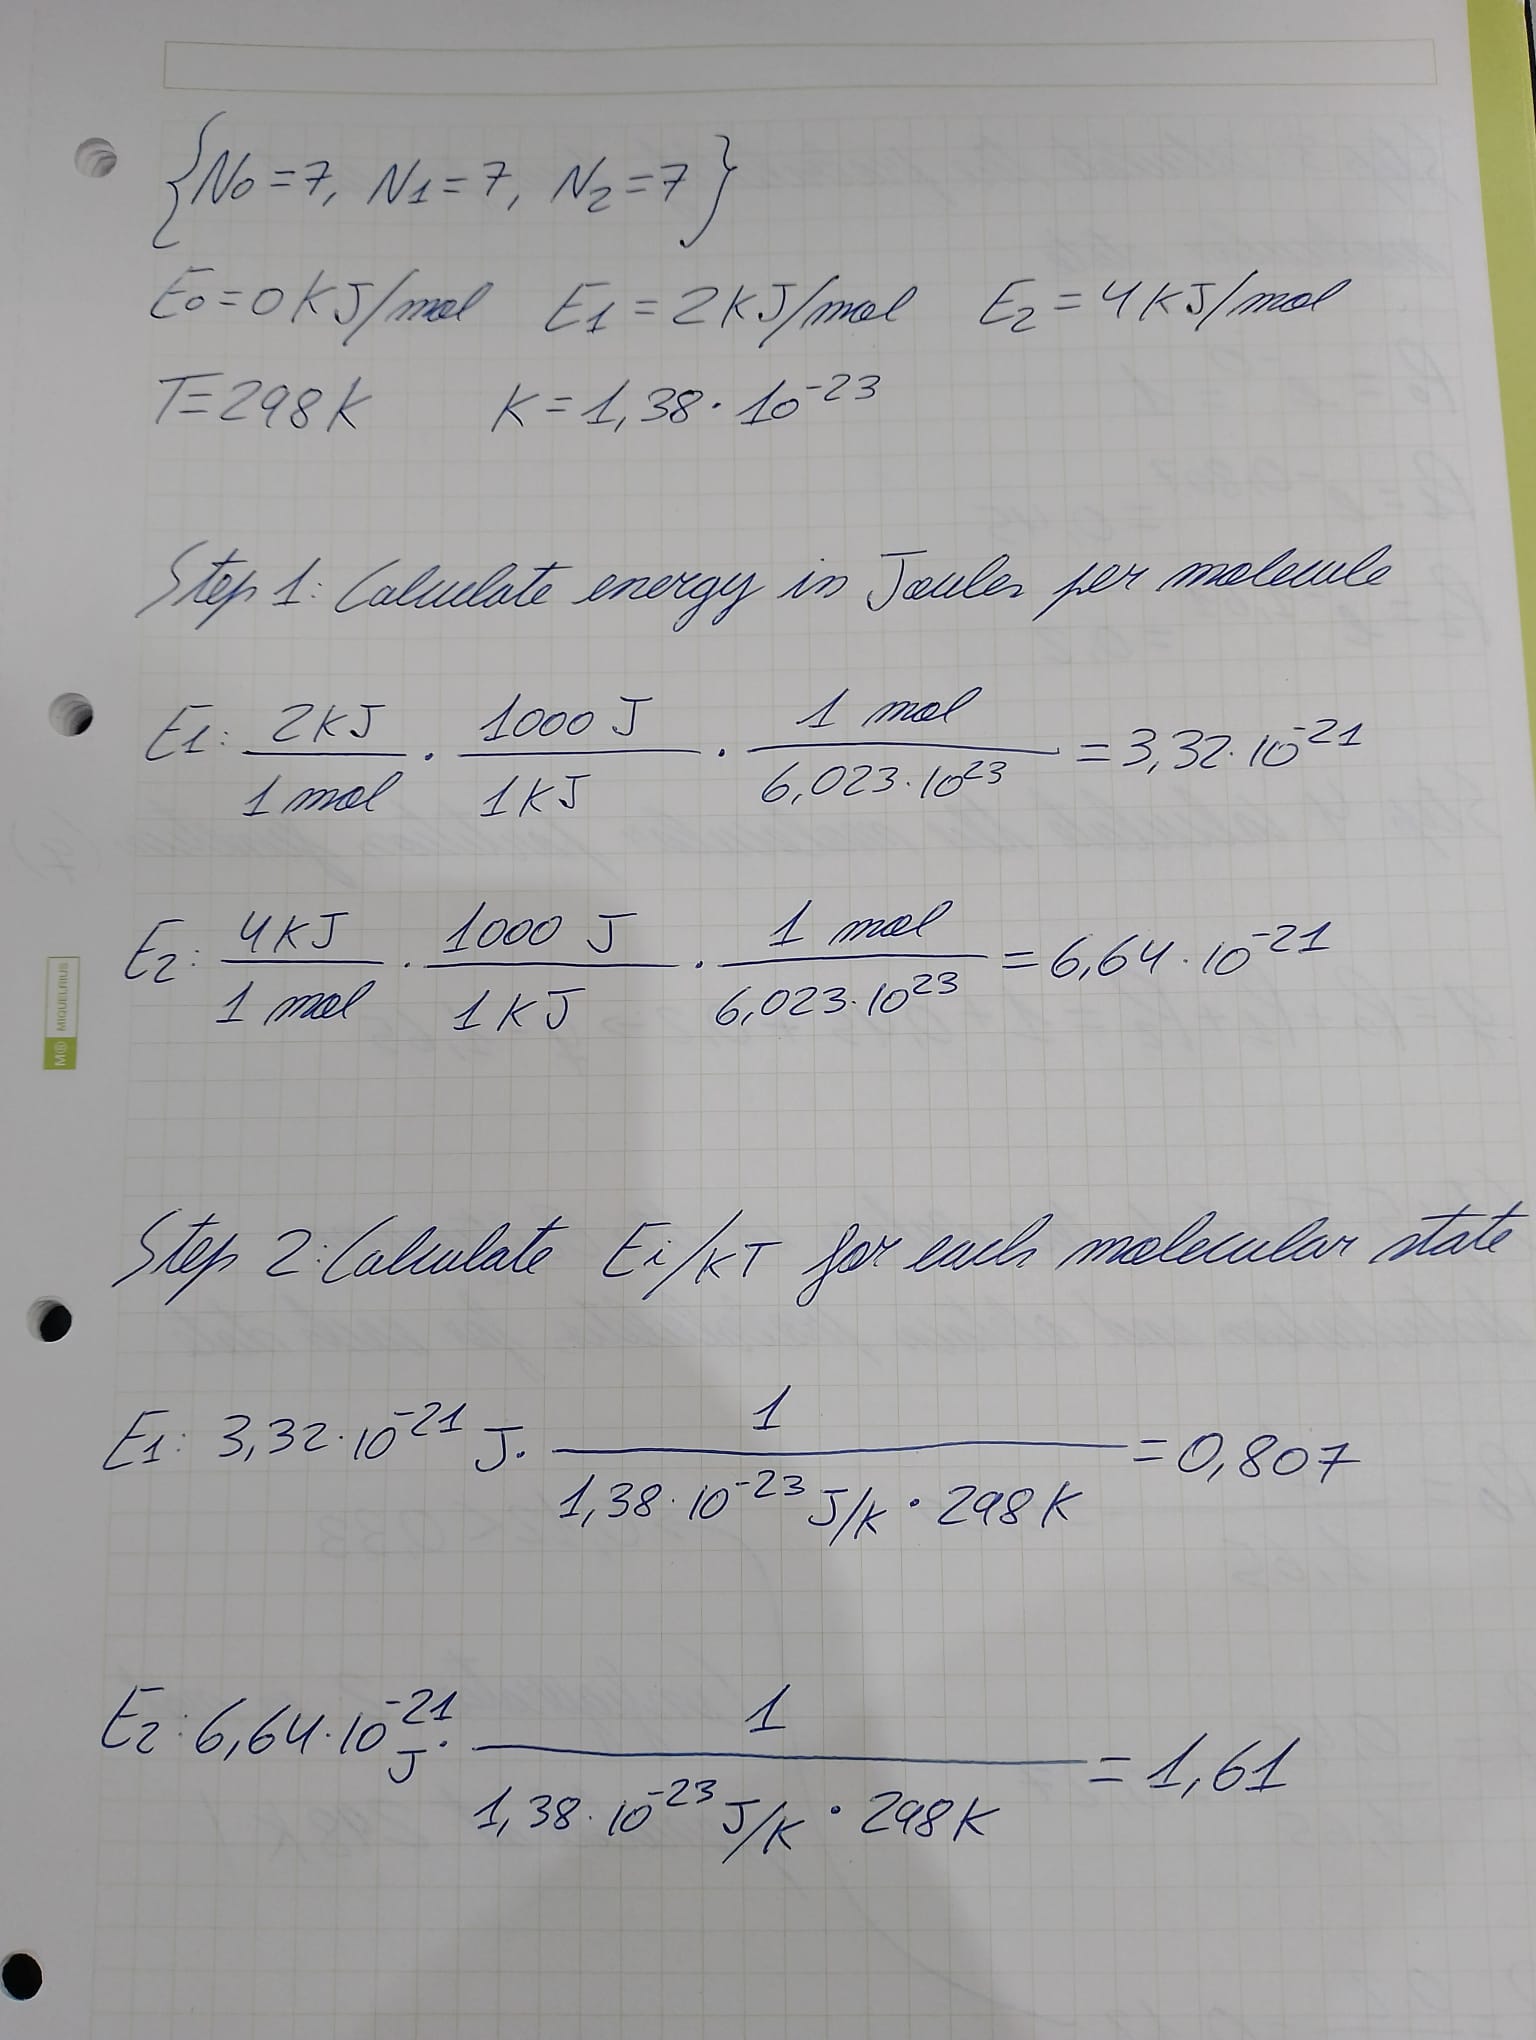 {N₀=7, N₁=7, N₂=7}
E₀=0KJ/mol E₁=2KJ/mol E₂=4KJ/mol
T=298K K=1,38·10⁻²³
Step 1: Calculate energy in Joules per molecule
E₁: 2KJ/1 mol · 1000 J/1 KJ · 1 mol/6,023·10²³ = 3,32·10⁻²¹
E₂: 4KJ/1 mol · 1000 J/1 KJ · 1 mol/6,023·10²³ = 6,64·10⁻²¹
M® MIQUELRIUS
Step 2: Calculate Ei/KT for each molecular state
E₁: 3,32·10⁻²¹ J· 1/1,38·10⁻²³ J/K · 298K = 0,807
E₂: 6,64·10⁻²¹ J· 1/1,38·10⁻²³ J/K · 298K = 1,61